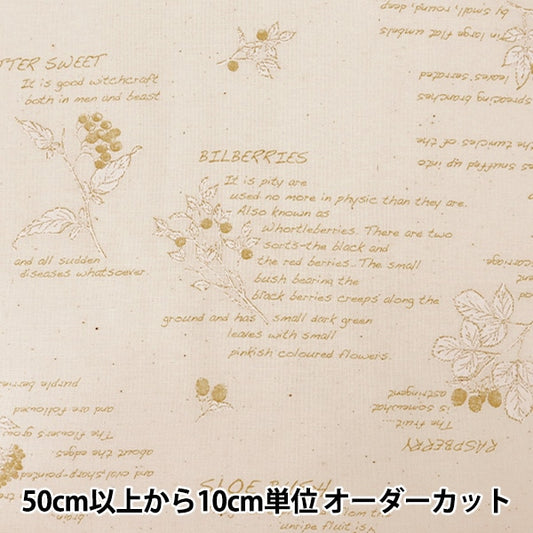 TTER SWEET
It is good witchcraft
both in men and beast
and all sudden
diseases whatsoever.
BILBERRIES
It is pity are
used no more in physic than they are.
Also known as
whortleberries. There are two
sorts-the black and
the red berries... The small
bush bearing the
black berries creeps along the
ground and has small dark green
leaves with small
pinkish coloured flowers.
by small, round, deep
in large flat umbels
leaves serrated
spreading branches
the tunicles of the
as snuffed up into
carriage.
RASPBERRY
The fruit...
is somewhat
astringent
The flowers grow
about the edges.
and oval, sharp-pointed
and are followed
purple berries
SLOE BUSH
from the
unripe fruit is
50cm以上から10cm単位 オーダーカット